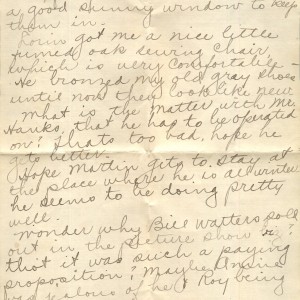 a good shining window to keep
them in.
got me a nice little
fumed oak sewing chair
which is very comfortable -
He bronzed my old gray shoes
until now them look like new
What is the matter with Mr.
Hanks, that he has to be operated
on? Thats too bad, hope he
gets better.
Hope Martin gets to stay at
the place where he is all winter
he seems to be doing pretty
well.
Wonder why Bill Watters sold
out in the picture show
that it was such a paying
proposition? Maybe
was jealous of her & Roy being